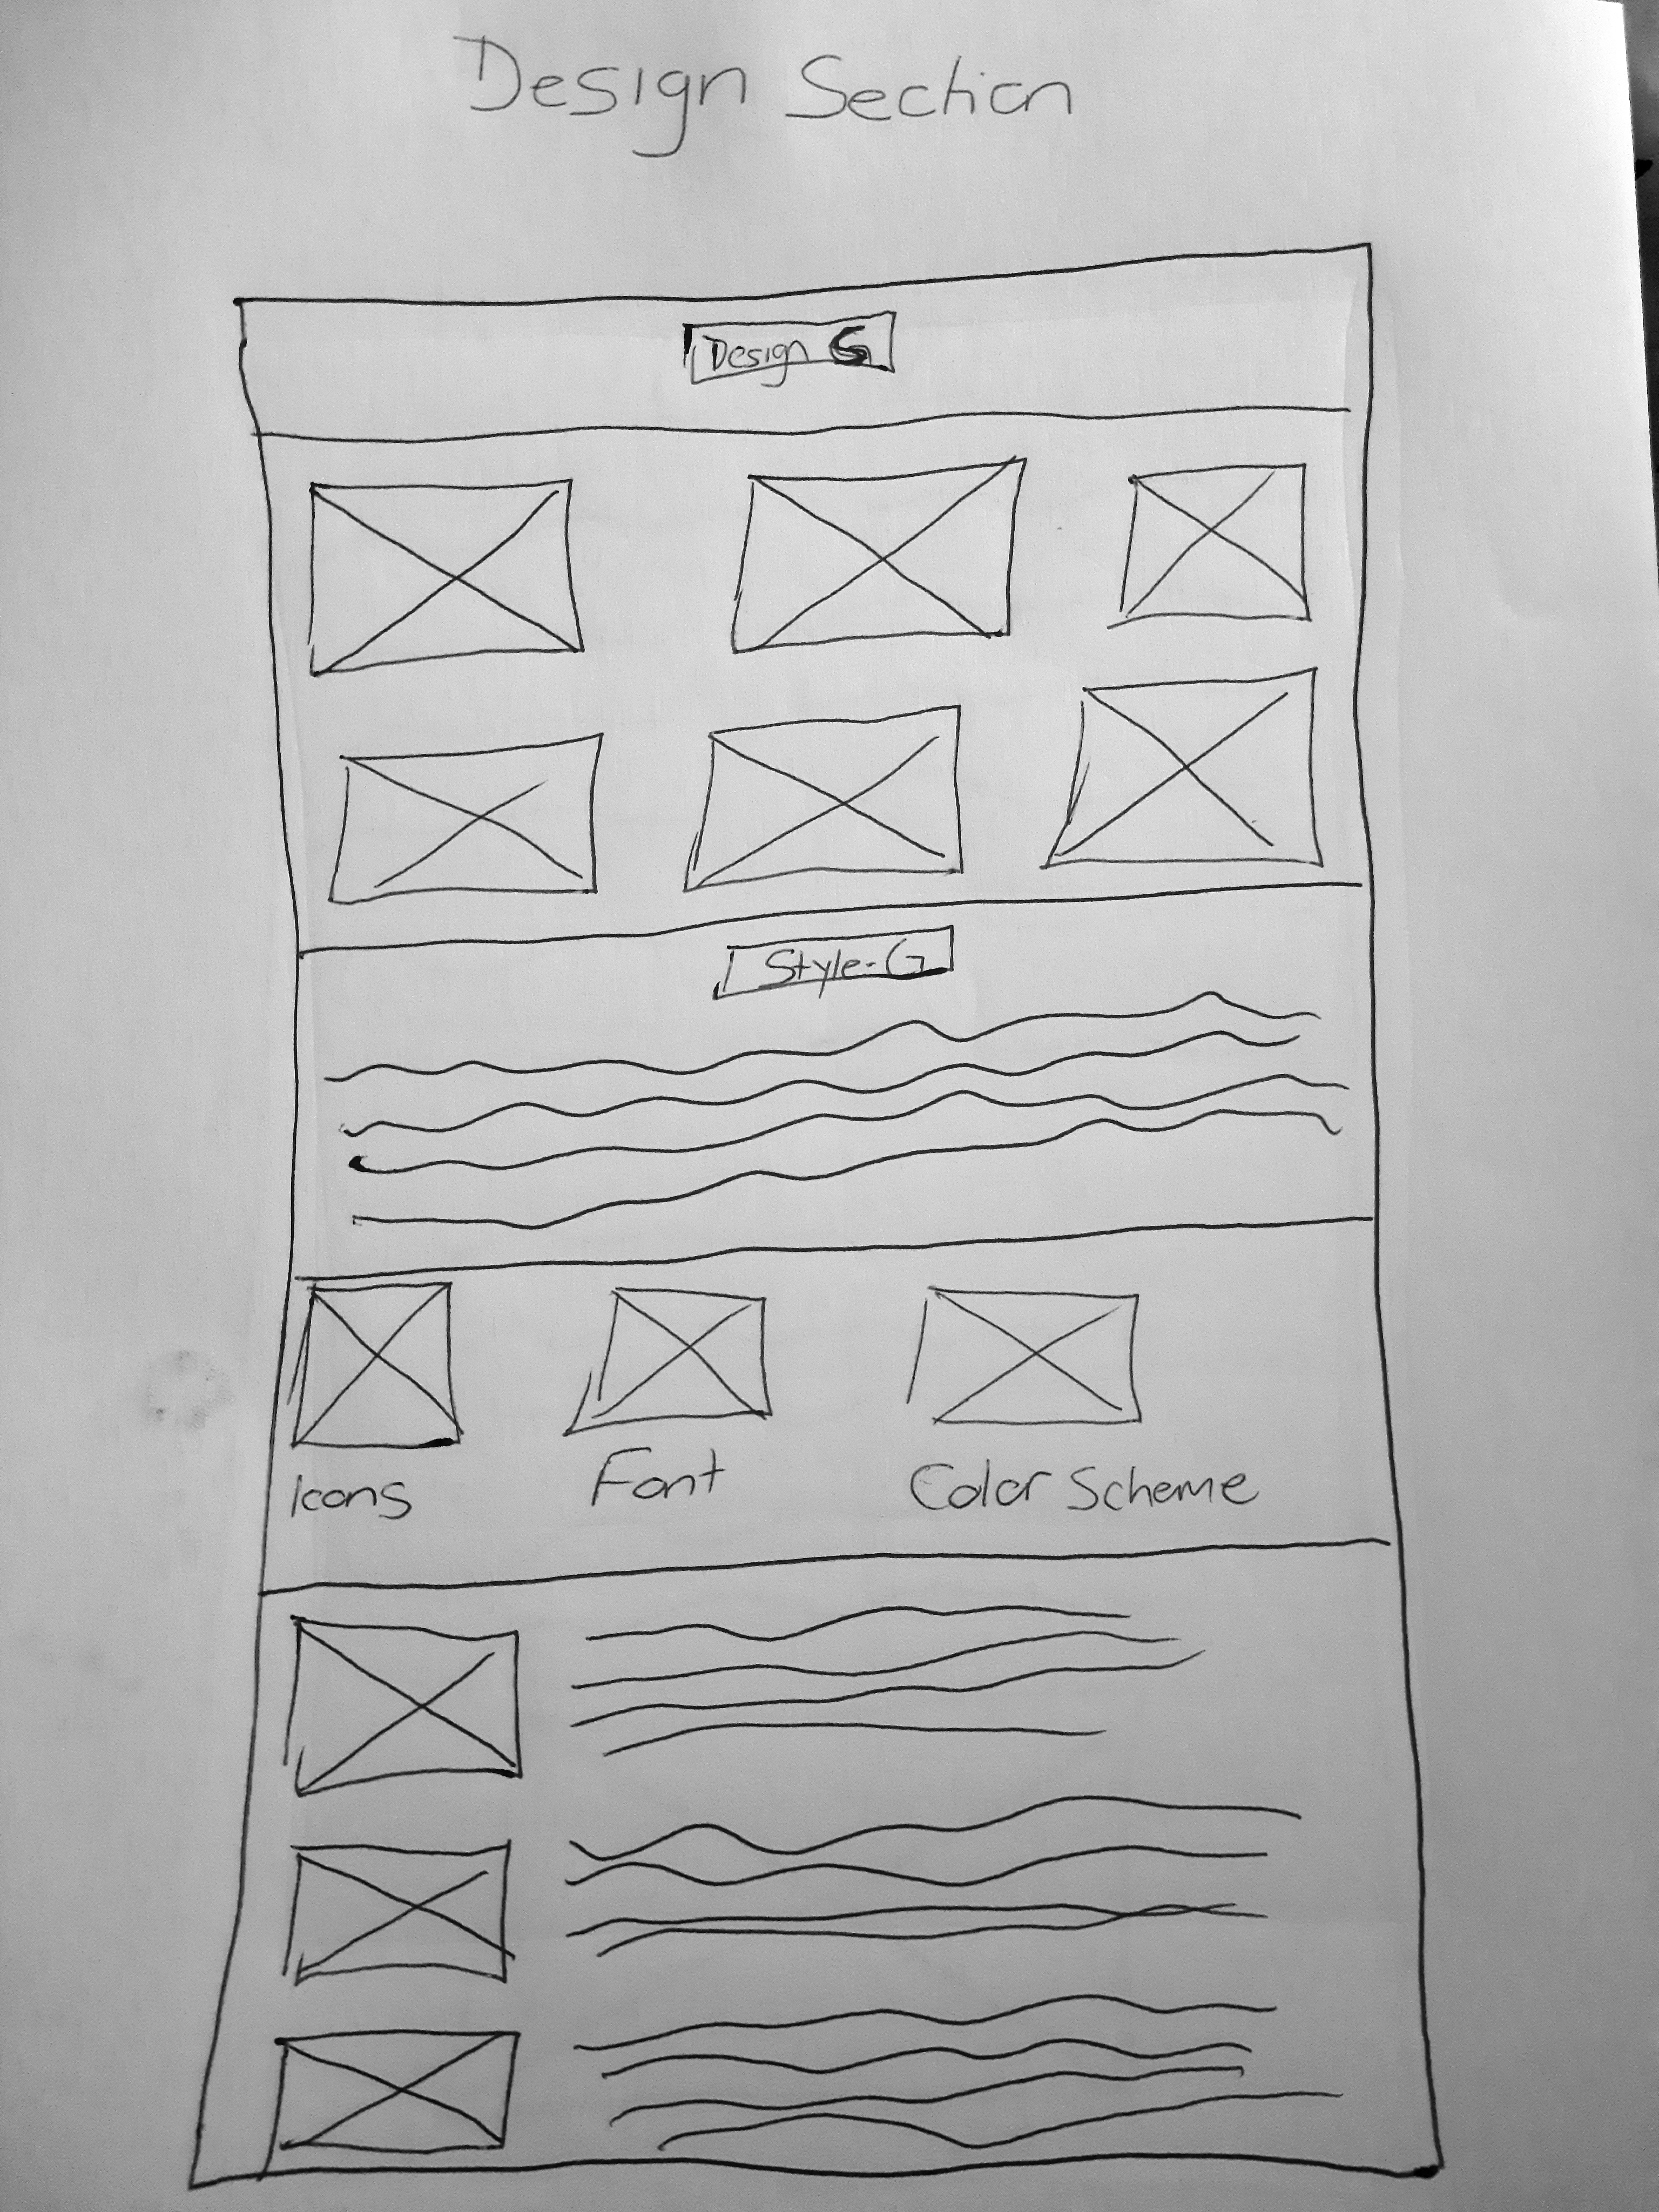 Design Section
Design G
Style-G
Icons Font Color Scheme